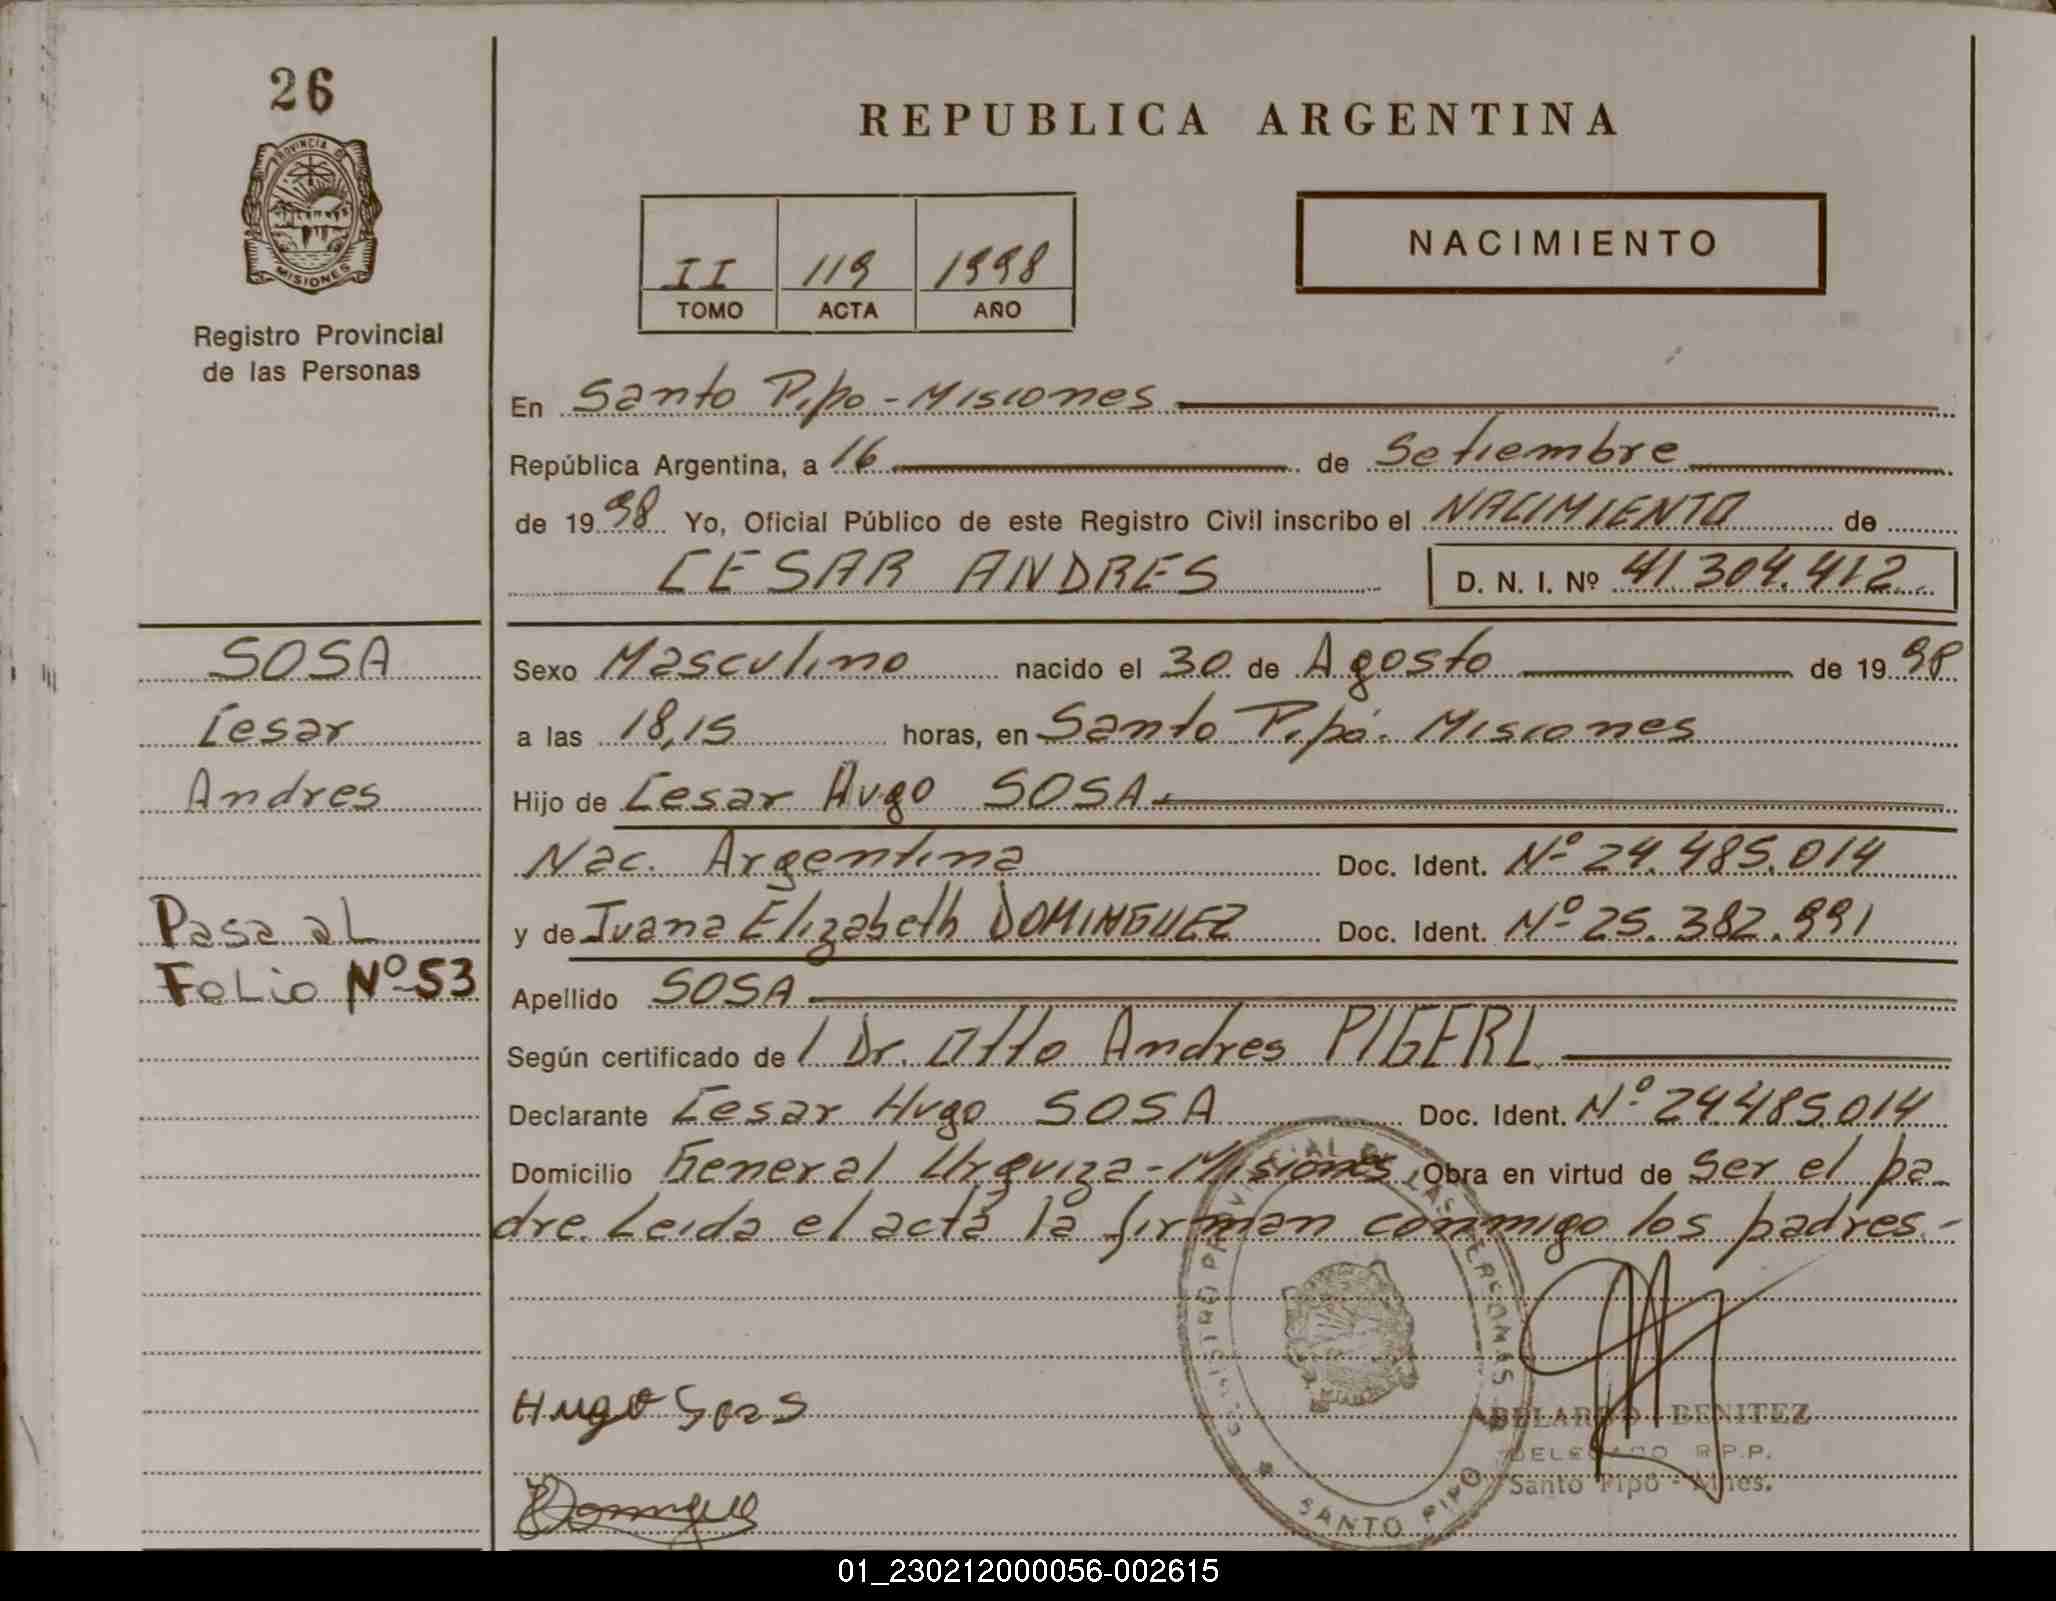 26
PROVINCIA DE
MISIONES
Registro Provincial
de las Personas
REPUBLICA ARGENTINA
II 119 1998
TOMO ACTA AÑO
NACIMIENTO
En Santo Pipo - Misiones
República Argentina, a 16 de Setiembre
de 1998 Yo, Oficial Público de este Registro Civil inscribo el NACIMIENTO de
CESAR ANDRES D. N. I. Nº 41.304.412
SOSA
Cesar
Andres
Pasa al
Folio Nº 53
Sexo Masculino nacido el 30 de Agosto de 1998
a las 18,15 horas, en Santo Pipó. Misiones
Hijo de Cesar Hugo SOSA
Nac. Argentina Doc. Ident. Nº 24.485.014
y de Juana Elizabeth DOMINGUEZ Doc. Ident. Nº 25.382.991
Apellido SOSA
Según certificado de l Dr. Otto Andres PIGERL
Declarante Cesar Hugo SOSA Doc. Ident. Nº 24.485.014
Domicilio General Urquiza - Misiones Obra en virtud de ser el pa-
dre. Leida el acta la firman conmigo los padres.-
Hugo Sosa
ABELARDO BENITEZ
DELEGADO R.P.P.
Santo Pipó - Mnes.
SANTO PIPO
01_230212000056-002615